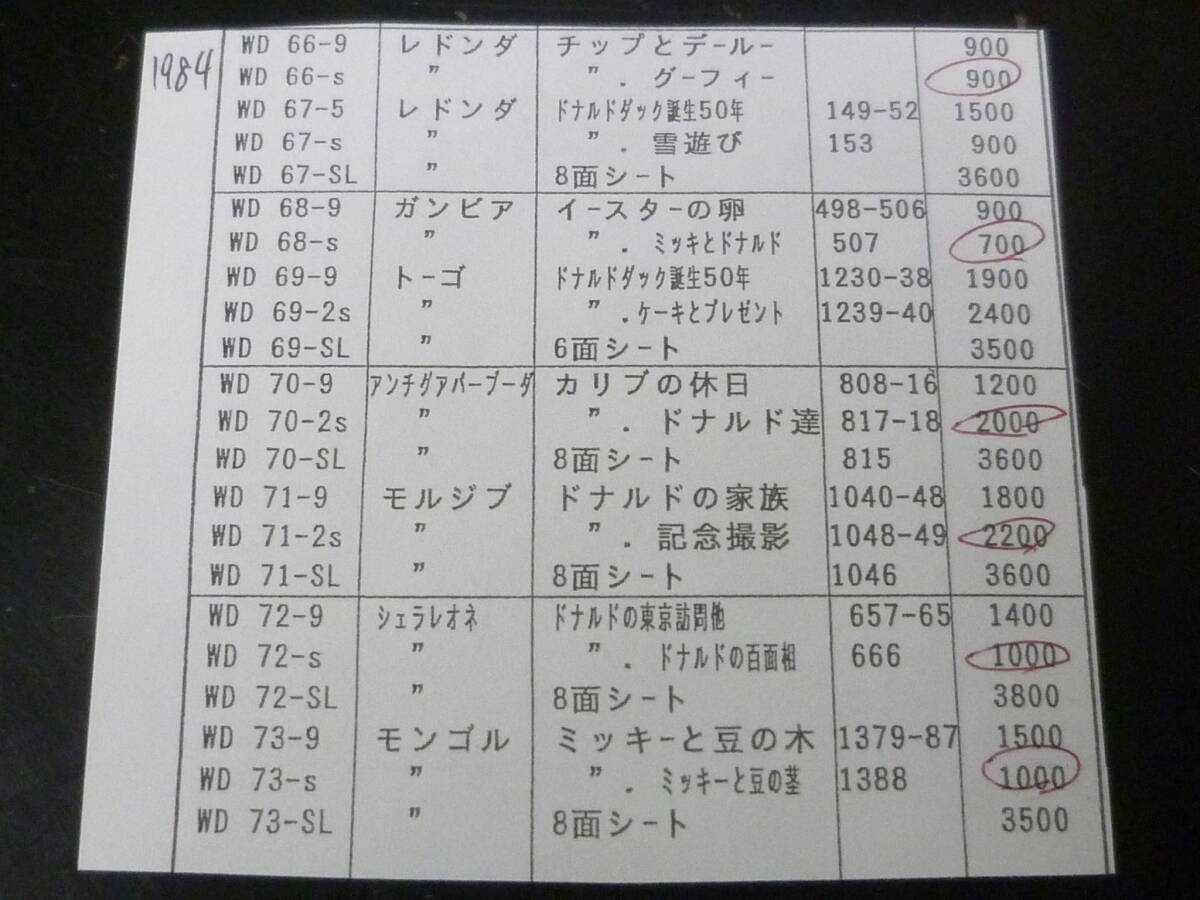 1984
WD 66-9 レドンダ チップとデール- 900
WD 66-s 〃 〃. グーフィー 900
WD 67-5 レドンダ ドナルドダック誕生50年 149-52 1500
WD 67-s 〃 〃. 雪遊び 153 900
WD 67-SL 〃 8面シート 3600
WD 68-9 ガンビア イースターの卵 498-506 900
WD 68-s 〃 〃. ミッキとドナルド 507 700
WD 69-9 トーゴ ドナルドダック誕生50年 1230-38 1900
WD 69-2s 〃 〃.ケーキとプレゼント 1239-40 2400
WD 69-SL 〃 6面シート 3500
WD 70-9 アンチグアバーブーダ カリブの休日 808-16 1200
WD 70-2s 〃 〃. ドナルド達 817-18 2000
WD 70-SL 〃 8面シート 815 3600
WD 71-9 モルジブ ドナルドの家族 1040-48 1800
WD 71-2s 〃 〃. 記念撮影 1048-49 2200
WD 71-SL 〃 8面シート 1046 3600
WD 72-9 シェラレオネ ドナルドの東京訪問他 657-65 1400
WD 72-s 〃 〃. ドナルドの百面相 666 1000
WD 72-SL 〃 8面シート 3800
WD 73-9 モンゴル ミッキーと豆の木 1379-87 1500
WD 73-s 〃 〃. ミッキーと豆の茎 1388 1000
WD 73-SL 〃 8面シート 3500